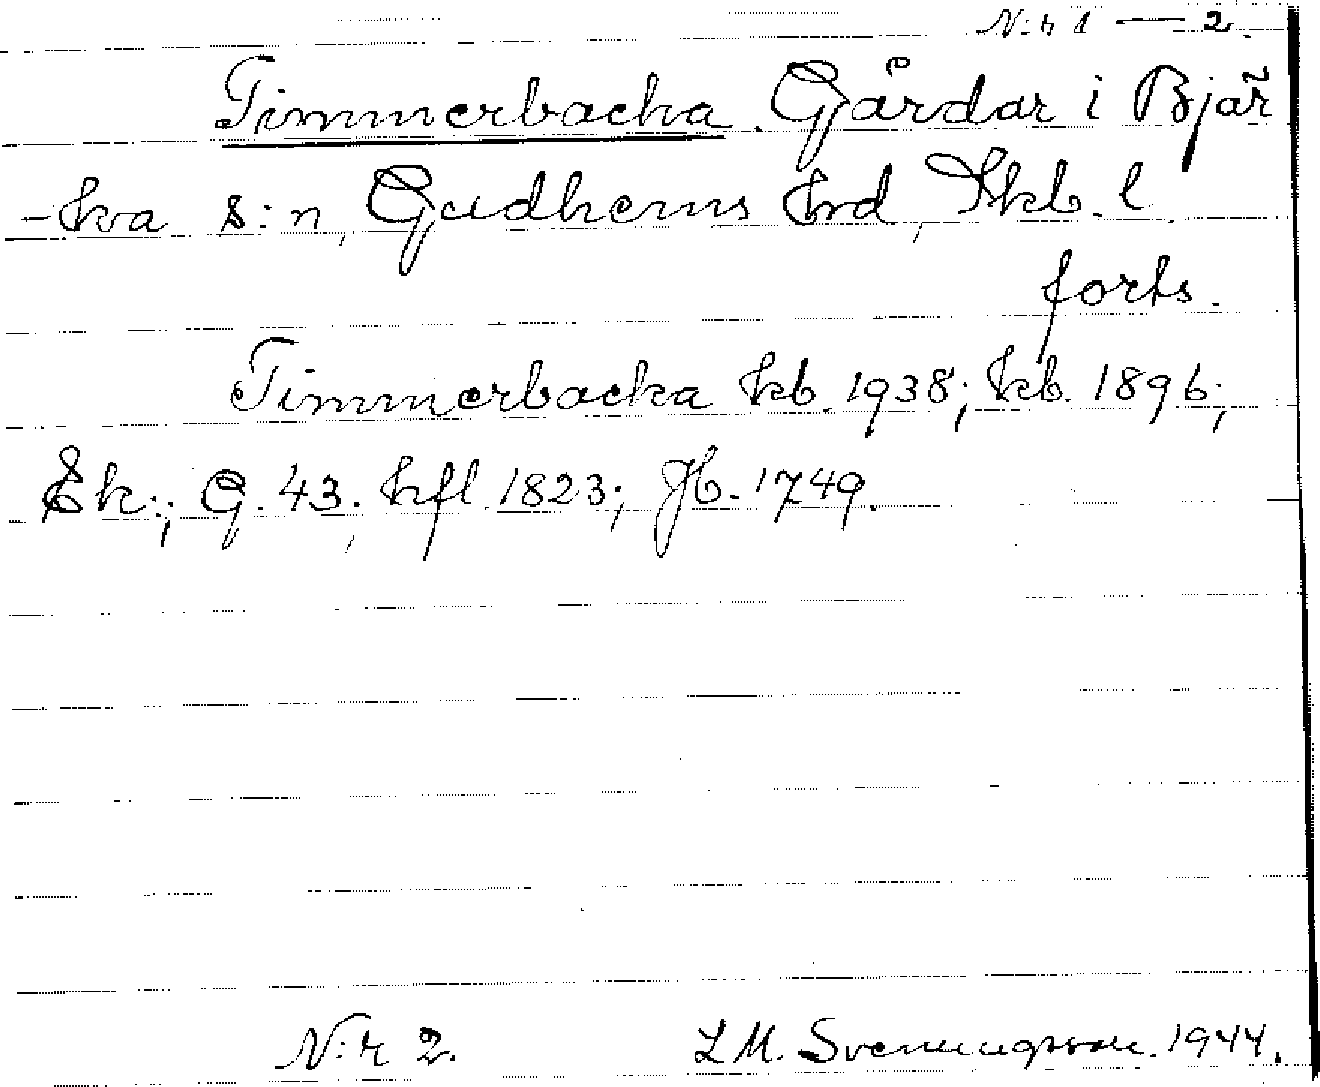 N:r 1 — 2.
Timmerbacka. Gårdar i Bjär
-kva s:n, Gudhems hrd, Skb. l.
forts.
Timmerbacka kb. 1938; kb. 1896;
Ek:; G. 43, kfl. 1823; Jb. 1749.
N:r 2. L M. Svenungsson. 1944.